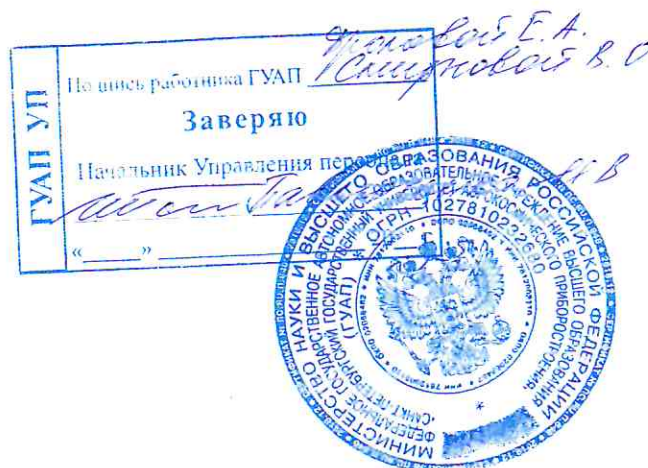 ГУАП УП
Подпись работника ГУАП
Смирновой В. О
Е. А.
Заверяю
Начальник Управления персонала
Н В
«____» ____
МИНИСТЕРСТВО НАУКИ И ВЫСШЕГО ОБРАЗОВАНИЯ РОССИЙСКОЙ ФЕДЕРАЦИИ
ФЕДЕРАЛЬНОЕ ГОСУДАРСТВЕННОЕ АВТОНОМНОЕ ОБРАЗОВАТЕЛЬНОЕ УЧРЕЖДЕНИЕ ВЫСШЕГО ОБРАЗОВАНИЯ
«САНКТ-ПЕТЕРБУРГСКИЙ ГОСУДАРСТВЕННЫЙ УНИВЕРСИТЕТ АЭРОКОСМИЧЕСКОГО ПРИБОРОСТРОЕНИЯ»
(ГУАП) * ОГРН 1027810232680